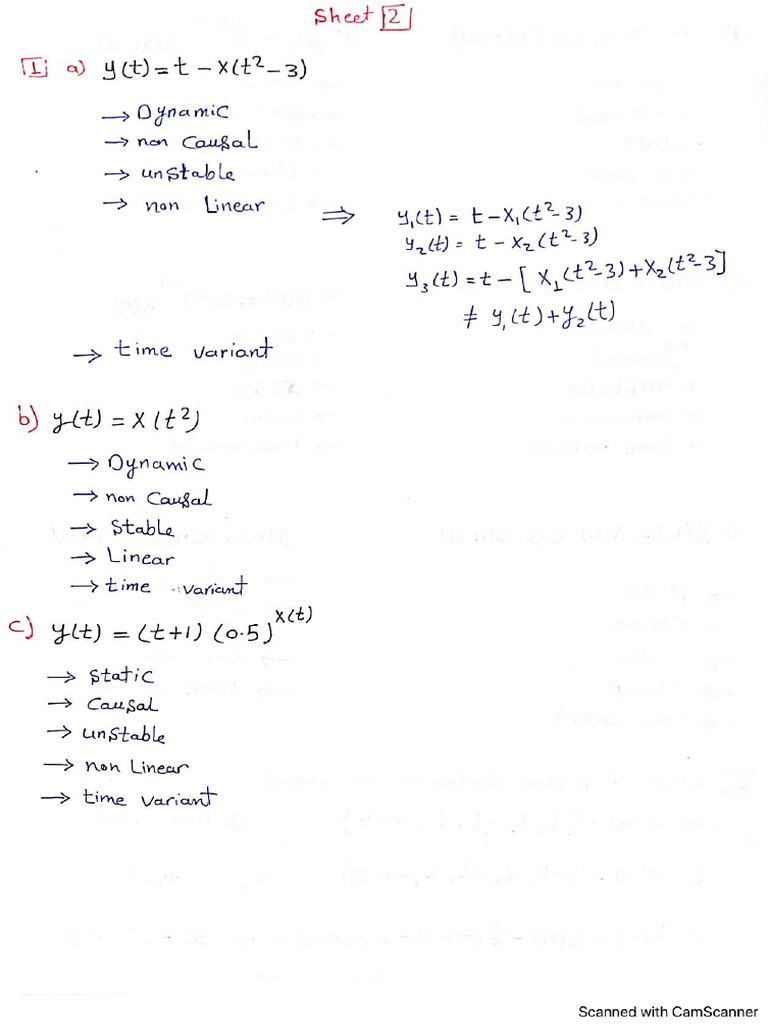 Sheet 2
1 a) y(t) = t − x(t² − 3)
→ Dynamic
→ non Causal
→ unstable
→ non Linear ⇒ y₁(t) = t − x₁(t² − 3)
y₂(t) = t − x₂(t² − 3)
y₃(t) = t − [ x₁(t² − 3) + x₂(t² − 3]
≠ y₁(t) + y₂(t)
→ time variant
b) y(t) = x(t²)
→ Dynamic
→ non Causal
→ Stable
→ Linear
→ time variant
c) y(t) = (t+1) (0.5)^x(t)
→ Static
→ Causal
→ unstable
→ non Linear
→ time variant
Scanned with CamScanner